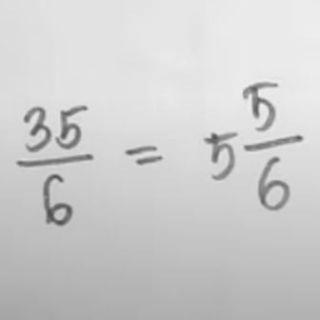 35/6 = 5 5/6